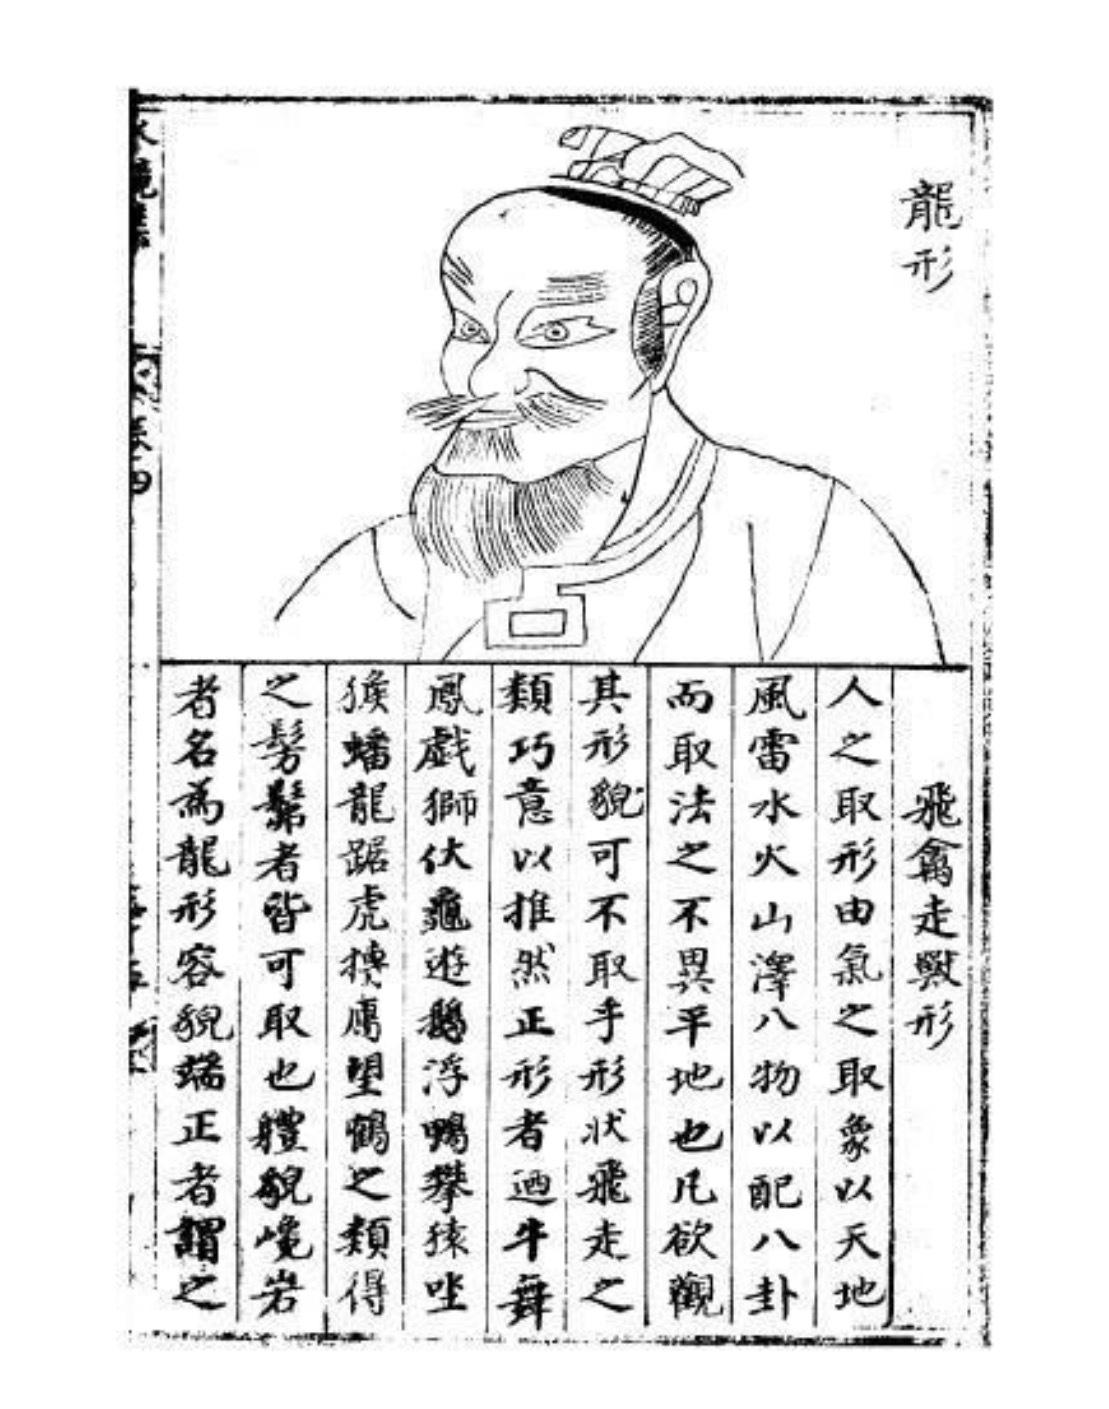 龍形
飛禽走獸形
人之取形由氣之取象以天地
風雷水火山澤八物以配八卦
而取法之不異平地也凡欲觀
其形貌可不取乎形狀飛走之
類巧意以推然正形者迺牛舞
鳳戲獅伏龜遊鵝浮鴨攀猿坐
猴蟠龍踞虎摶鴈望鶴之類得
之髣髴者皆可取也軆貌巉岩
者名為龍形容貌端正者謂之